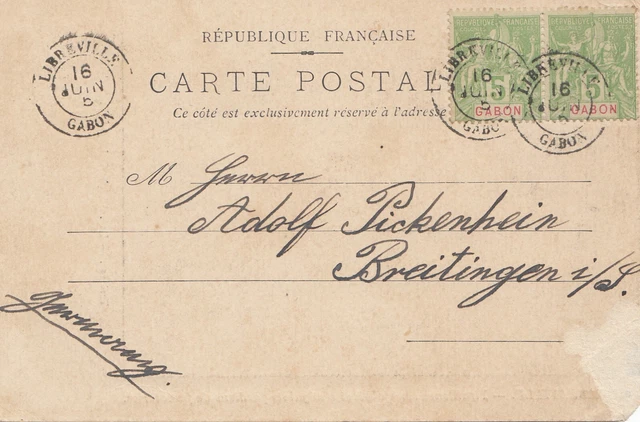 RÉPUBLIQUE FRANÇAISE
CARTE POSTAL
Ce côté est exclusivement réservé à l'adresse
LIBREVILLE
16
JUIN
5
GABON
RÉPUBLIQUE FRANÇAISE
5
GABON
LIBREVILLE
16
JUIN
5
GABON
5
GABON
LIBREVILLE
16
GABON
M Herrn
Adolf Pickenhein
Breitingen i/S.
Germany